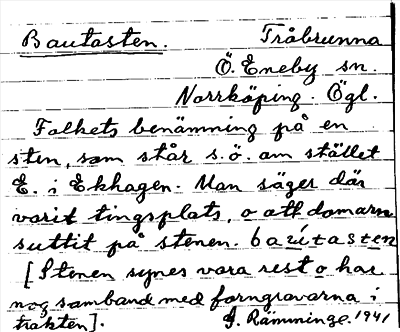 Bautasten. Tråbrunna
Ö. Eneby sn.
Norrköping. Ögl.
Folkets benämning på en
sten, som står s.ö. om stället
E. i Ekhagen. Man säger där
varit tingsplats, o att domarn
suttit på stenen. baútasten
[Stenen synes vara rest o har
nog samband med forngravarna i
trakten]. J. Rämminge. 1941